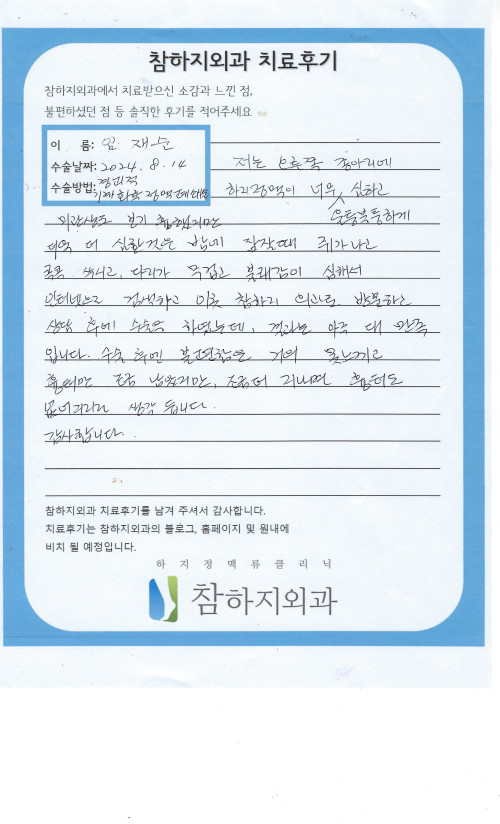 참하지외과 치료후기
참하지외과에서 치료받으신 소감과 느낀 점,
불편하셨던 점 등 솔직한 후기를 적어주세요
이 름: 임 재순
수술날짜: 2024. 8. 14
수술방법: 경피적
기계화학 정맥폐쇄술
저는 오른쪽 종아리에
하지정맥이 너무 심하고
울퉁불퉁하게
외관상도 보기 흉했지만
더욱 더 심한것은 밤에 잠잘때 쥐가나고
콕콕 쑤시고, 다리가 무겁고 불쾌감이 심해서
인터넷으로 검색하고 이곳 참하지 외과로 방문하고
상담 후에 수술을 하였는데, 결과는 아주 대 만족
입니다. 수술 후엔 불편함은 거의 못느끼고
흉터만 조금 남았지만, 조금더 지나면 흉터도
없어지리라 생각 듭니다.
감사합니다.
참하지외과 치료후기를 남겨 주셔서 감사합니다.
치료후기는 참하지외과의 블로그, 홈페이지 및 원내에
비치 될 예정입니다.
하지정맥류클리닉
참하지외과